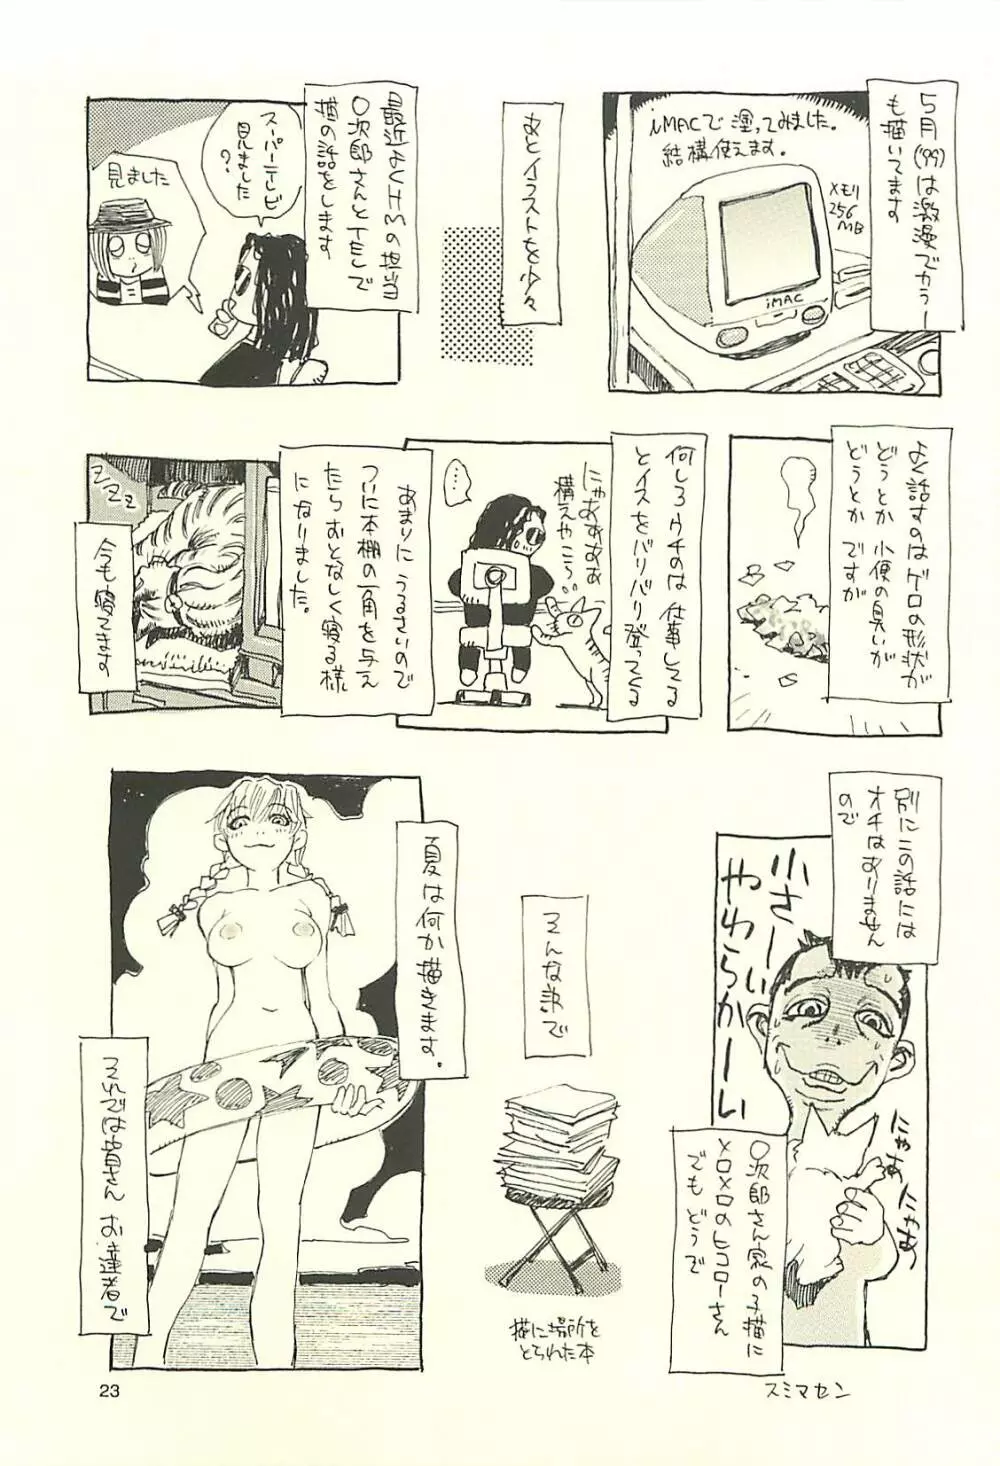 5月('99)は激漫でカラー
も描いてます
iMACで塗ってみました。
結構使えます。
メモリ
256
MB
iMAC
あとイラストを少々
最近よくHMの担当
〇次郎さんとTELで
猫の話をします
スーパーテレビ
見ました
?
見ました
よく話すのはゲロの形状が
どうとか小便の臭いが
どうとかですが
何しろウチのは仕事してる
とイスをバリバリ登ってくる
にゃああああ
構えやこら
…
あまりにうるさいので
ついに本棚の一角を与え
たらおとなしく寝る様
になりました。
ZZZZ
今も寝てます
別にこの話には
オチはありません
ので
小さーい
やわらかーい
にゃあ
にゃあ
〇次郎さん家の子猫に
メロメロのヒコローさん
でもどうで
スミマセン
そんな訳で
猫に場所を
とられた本
夏は何か描きます。
それでは皆さんお達者で
23